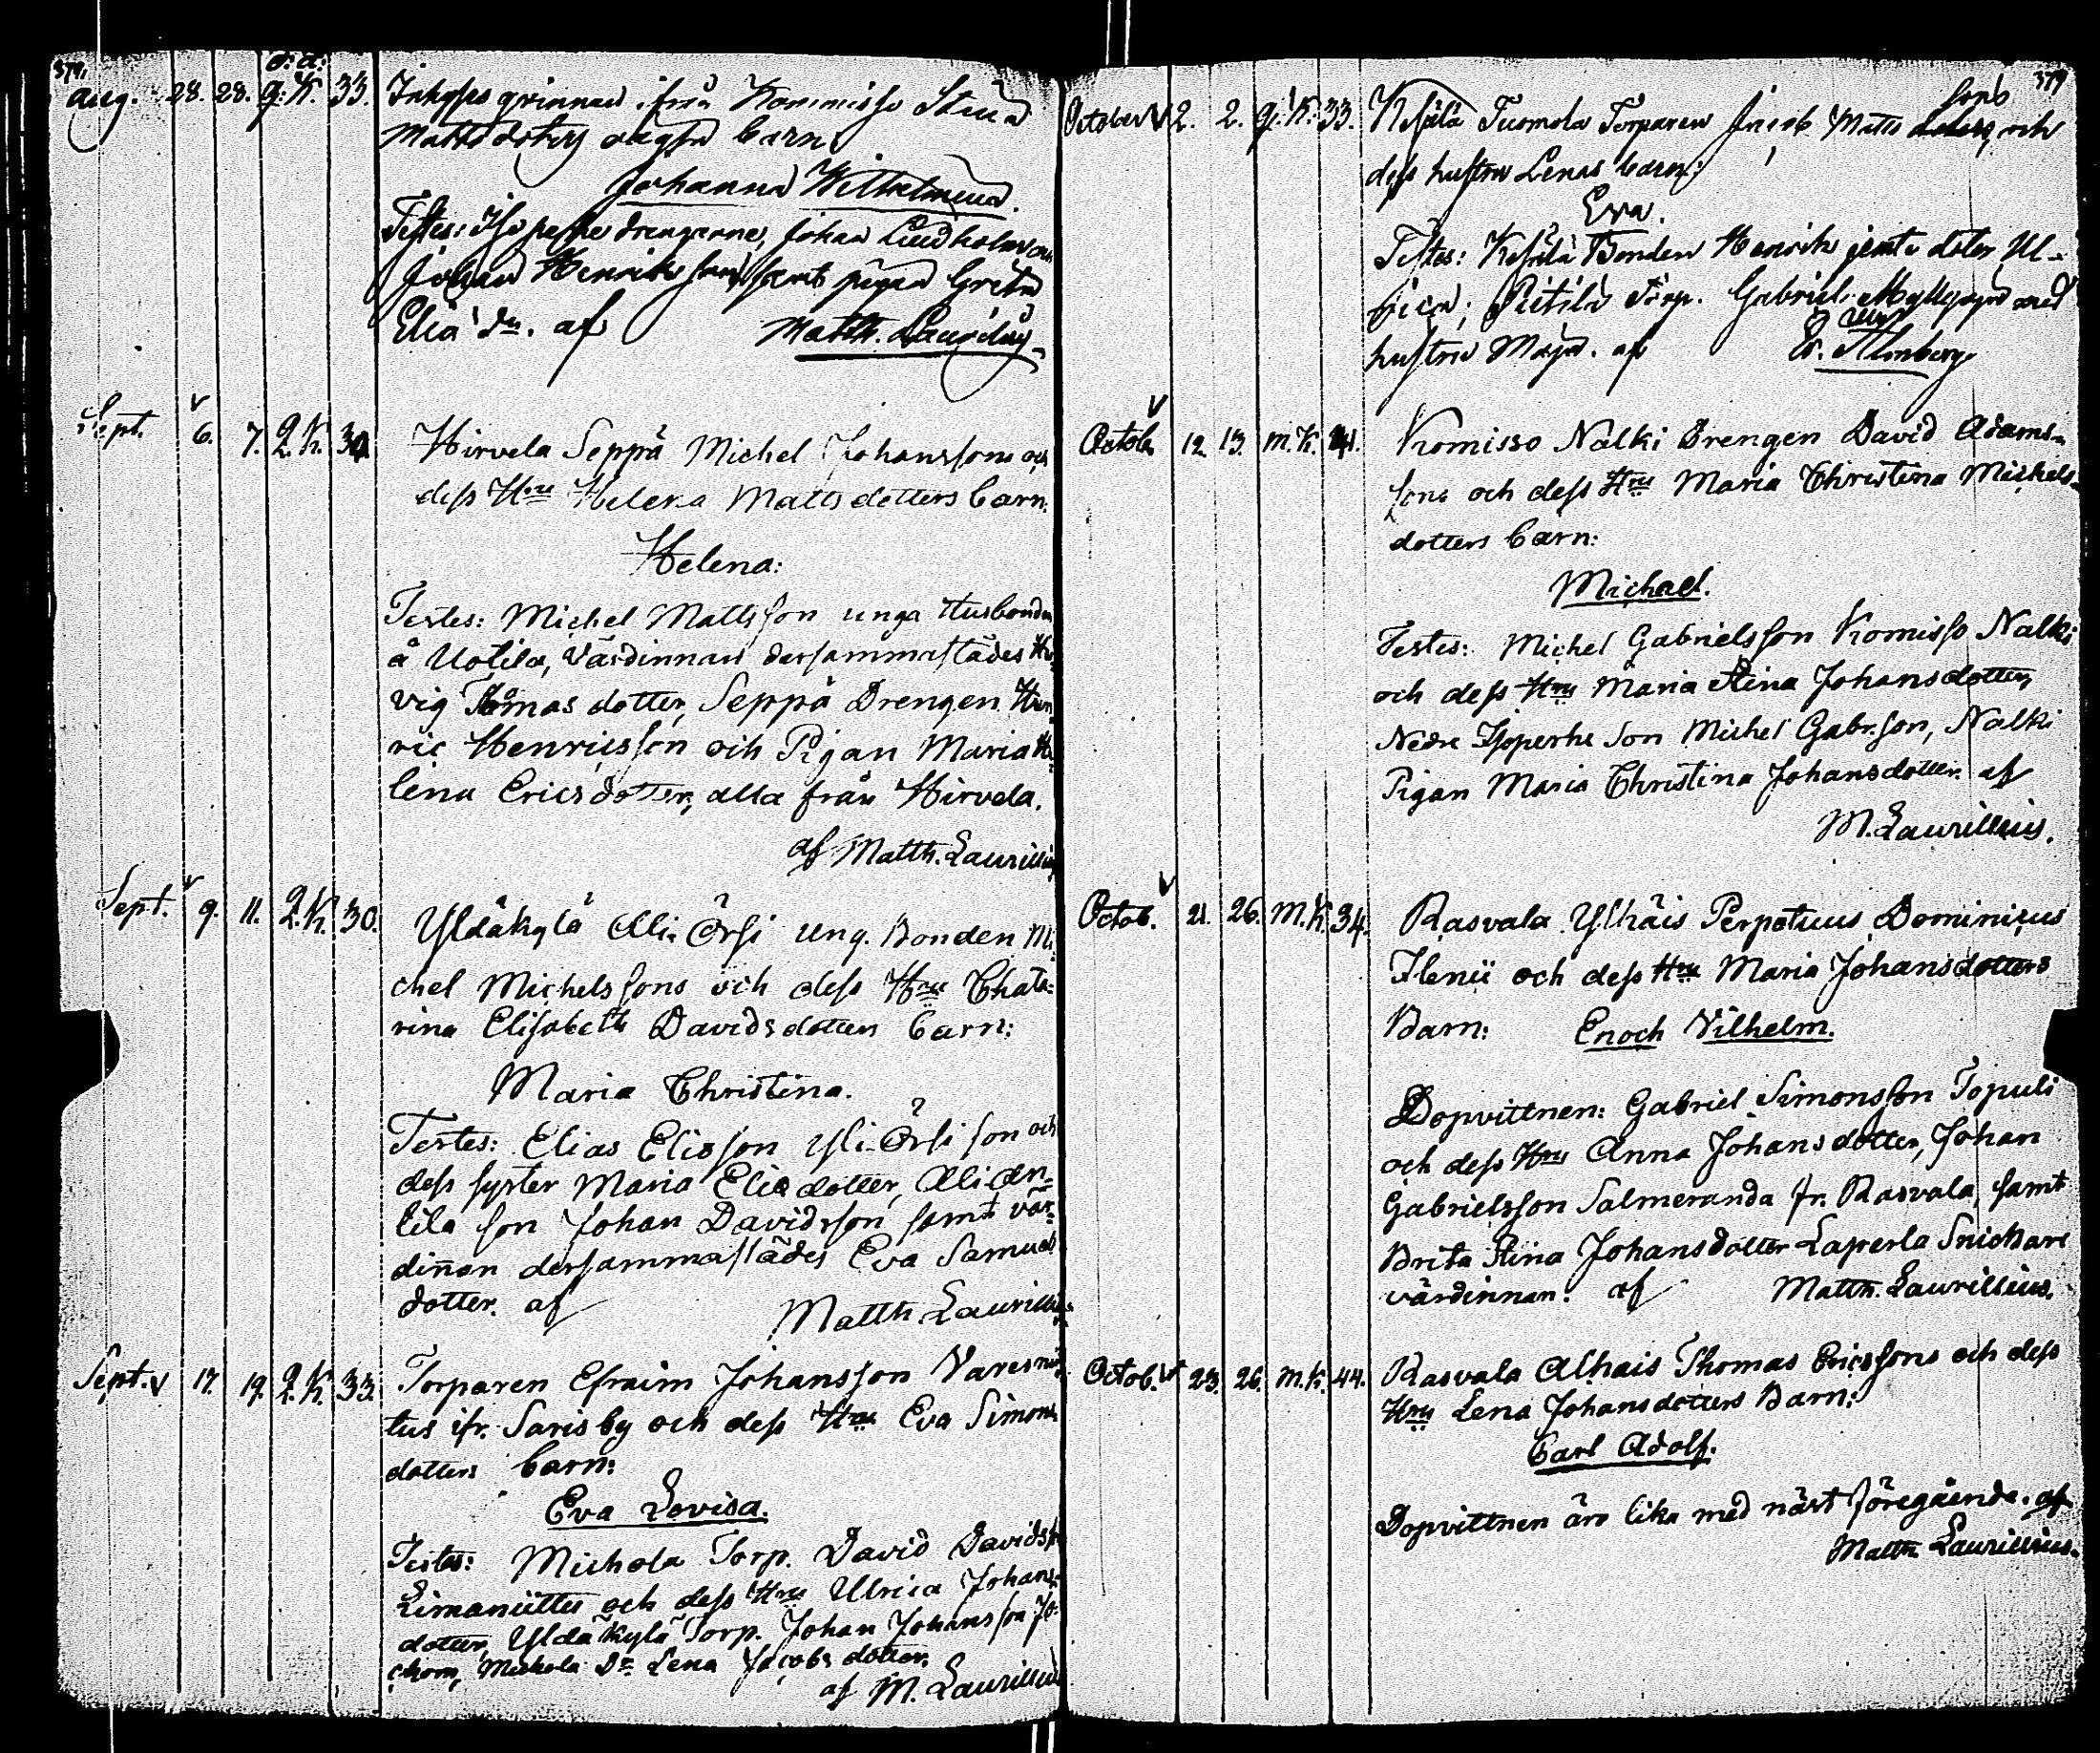 o: ä:
aug. 28. 28. q. K. 33. Inhyses qvinnan ifrån Kommisso Stina
Mattsdotters oägta barn
Johanna Wilhelmina.
Testes: Isoperhe drengarne, Johan Lindholm och
Johan Henriksson samt pigan Greta
Elia dr. af Matth. Laurelius
Sept. 6. 7. Q. K. 34 Hirvela Seppä Michel Johanssons och
dess Hru Helena Mattsdotters barn:
Helena:
Testes: Michel Mattsson unga Husbonden
å Uotila, Värdinnan dersammastädes
vig Thomas dotter, Seppä Drengen Hen
ric Henricsson och Pigan Maria He
lena Ericsdotter, alla från Hirvela.
af Matth. Laurillius
Sept. 9. 11. Q. K. 30. Yldäkylä Ali Örsi ung. Bonden Mi
chel Michelssons och dess Hru Chata=
rina Elisabeth Davidsdotters barn:
Maria Christina.
Testes: Elias Eliasson Yli-Örsi son och
dess syster Maria Eliedotter, Ali An=
tila son Johan Davidsson samt vär=
dinnan dersammastädes Eva Samuels
dotter. af Matth. Laurillius
Sept. 17. 19. Q. K. 33. Torparen Efraim Johansson Varesmä
tus ifr. Saris by och dess Hru Eva Simons
dotters barn:
Eva Lovisa.
Testes: Michola Torp. David Davidss
och dess Hru Ulrica Johans-
dotter, Yldäkylä Torp. Johan Johansson Jo=
chom, Michola Dr Lena Jacobs dotter.
af M. Laurillius
379
October 2. 2. q. K. 33. Kesälä Tuomola Torparen Jacob Matts sons och
dess hustru Lenas barn:
Eva.
Testes: Kesälä Bonden Henrik jemte doter Ul-
rica; Pietilä Torp. Gabriel med
hustru Maja. af
Octob. 12 13. M. K. 41. Komisso Nälki Drengen David Adams=
sons och dess Hru Maria Christina Michels=
dotters barn:
Michael.
Testes: Michel Gabrielsson Komisso Nalki
och dess Hru Maria Stina Johansdotter,
Nedre Isoperhe son Michel Gabr.son, Nalki
Pigan Maria Christina Johansdotter. af
M. Laurillius.
Octob. 21. 26. M. K. 34. Rasvala Ylhäis Perpetuus Dominicus
Ilenii och dess Hru Maria Johansdotters
Barn: Enoch Vilhelm.
Dopvittnen: Gabriel Simonsson Topuli
och dess Hru Anna Johansdotter, Johan
Gabrielsson Salmeranda fr. Rasvala, samt
Brita Stina Johansdotter Laperla Snickare
värdinnan. af Matth. Laurillius.
Octob. 23. 26. M. K. 44. Rasvala Alhais Thomas Ericssons och dess
Hru Lena Johansdotters Barn:
Carl Adolf.
Dopvittnen äro lika med näst föregående. af
Matth Laurillius.